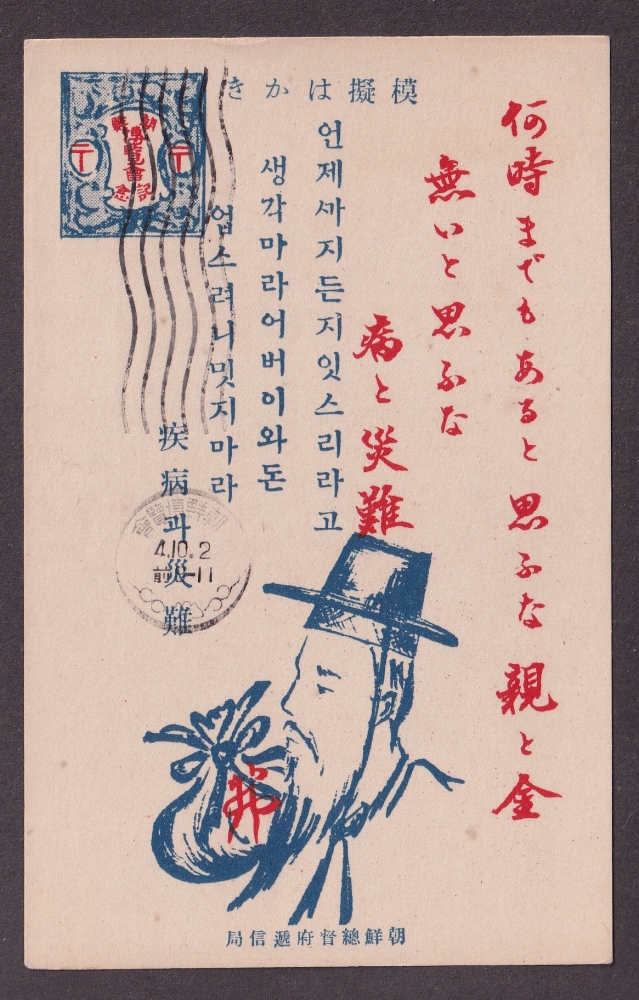 模擬はかき
何時までもあると思ふな親と金
無いと思ふな
病と災難
언제ᄭᅡ지든지잇스리라고
생각마라어버이와돈
업스려니밋지마라
疾病과災難
朝鮮
博覽會
記念
〒 〒
朝鮮博覽會
4.10.2
弗
朝鮮總督府遞信局